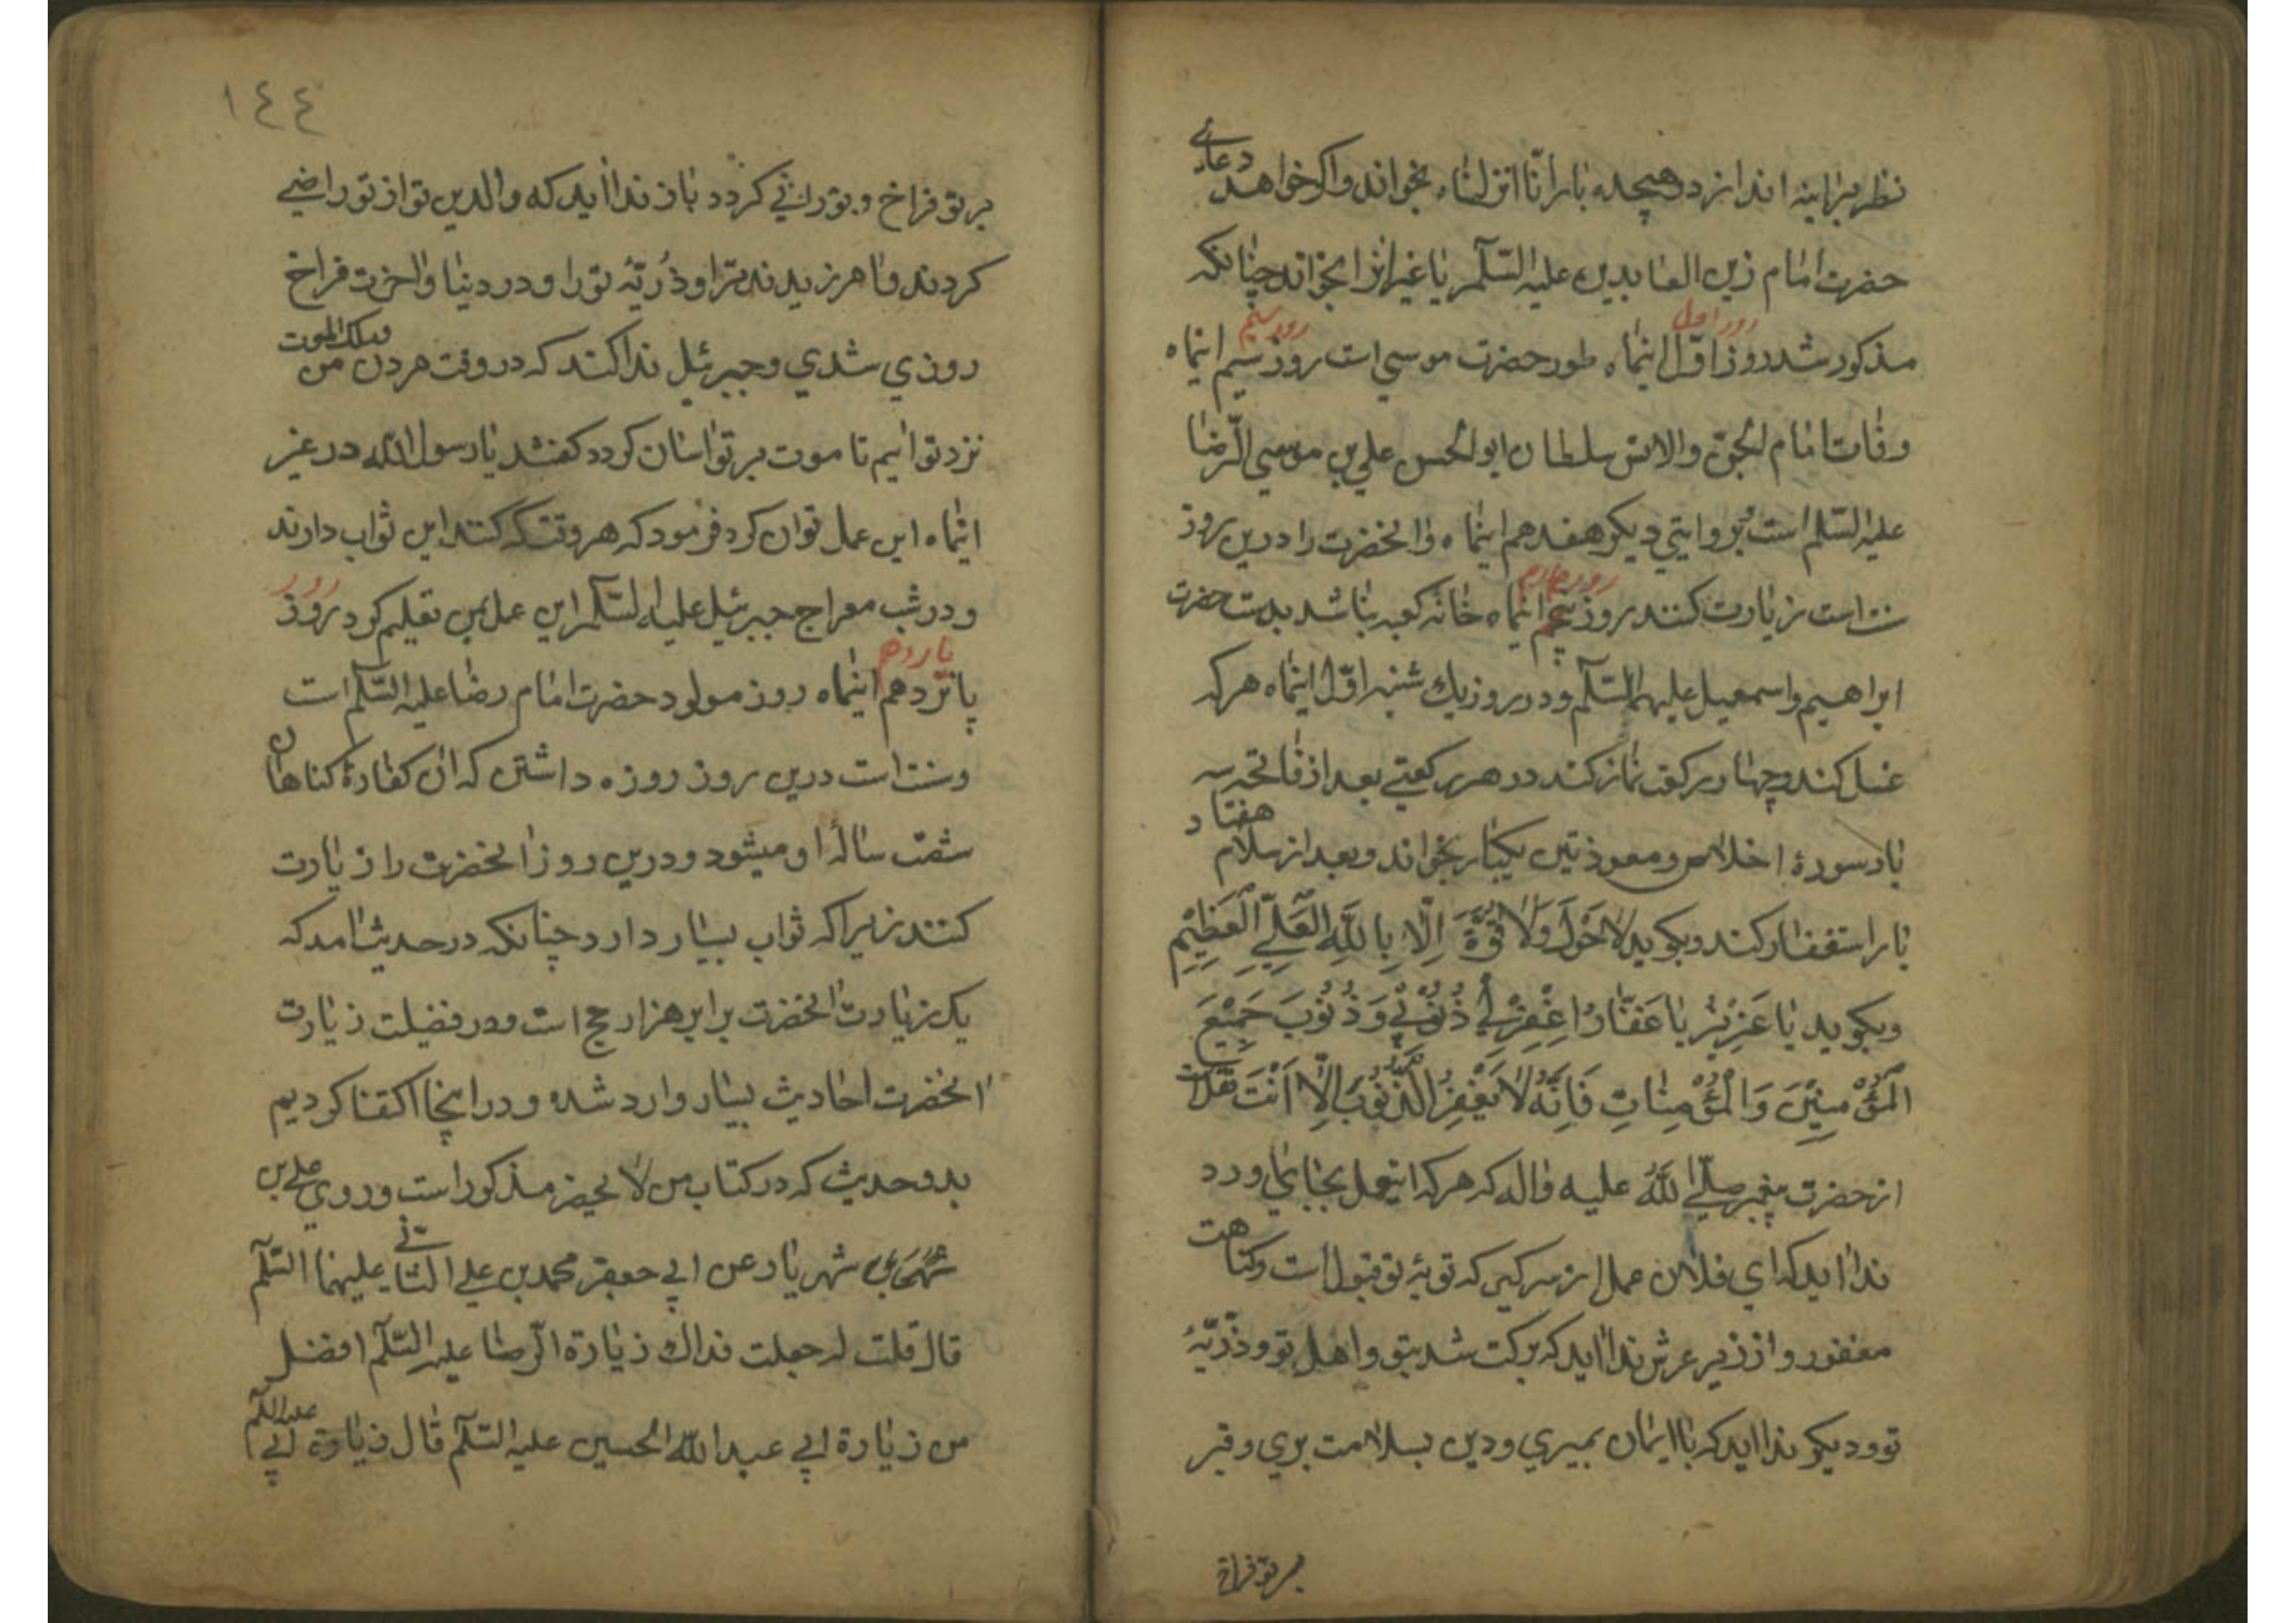 نظر بر اینه اندازد و هیجده بار انا انزلناه بخواند و اکر خواهد دعای
حضرت امام زین العابدین علیه السلام یا غیر انرا بخواند چنانکه
روز اول روز سیم
مذکور شد روز اول اینماه طور حضرت موسی است روز سیم اینماه
وفات امام الجن والانس سلطان ابو الحسن علی بن موسی الرضا
علیه السلام است بروایتی دیکر هفدهم اینماه و انحضرت را درین روز
سنت است زیارت کنند روز پنجم اینماه خانه کعبه بنا شد بدست حضرت
ابراهیم و اسمعیل علیهما السلام و در روز یک شنبه اول اینماه هر که
غسل کند و چهار رکعت نماز کند در هر رکعتی بعد از فاتحه سه
بار سورۀ اخلاص و معوذتین یکبار بخواند و بعد از سلام هفتاد
بار استغفار کند و بکوید لَا حَوْلَ وَلَا قُوَّةَ اِلَّا بِاللَّهِ الْعَلِيِّ الْعَظِيْمِ
و بکوید يَا عَزِيْزُ يَا غَفَّارُ اِغْفِرْلِي ذُنُوْبِي وَذُنُوْبَ جَمِيْعَ
الْمُؤْمِنِيْنَ وَالْمُؤْمِنَاتِ فَاِنَّهُ لَا يَغْفِرُ الذُّنُوْبَ اِلَّا اَنْتَ نقلست
از حضرت پیغمبر صلی اللّٰه علیه واله که هر که اینعمل بجا می اورد
ندا اید که ای فلان عمل از سر کیر که توبۀ تو قبول است و کناهت
مغفور و از زیر عرش ندا اید که برکت شد بتو و اهل تو و ذریّۀ
تو و دیکر ندا اید که با ایمان بمیری و دین بسلامت بری و قبر
بر تو فراخ
١٤٤
بر تو فراخ و نورانی کردد باز ندا اید که والدین تو از تو راضی
کردند و امرزیدند ترا و ذُریّۀ تو را و در دنیا و اخرت فراخ
روزی شدی و جبرئیل ندا کند که در وقت مردن من و ملک الموت
نزد تو ائیم تا موت بر تو اسان کردد کفتند یا رسول اللّه در غیر
اینماه این عمل توان کرد فرمود که هر وقت که کنند این ثواب دارند
و در شب معراج جبرئیل علیه السلام این عمل بمن تعلیم کرد روز
روز یازدهم
پانزدهم اینماه روز مولود حضرت امام رضا علیه السلام است
و سنت است درین روز روزه داشتن که ان کفارۀ کناهان
شصت سالۀ او میشود و درین روز انحضرت را زیارت
کنند زیرا که ثواب بسیار دارد چنانکه در حدیث امد که
یک زیارت انحضرت برابر هزار حج است و در فضیلت زیارت
انحضرت احادیث بسیار وارد شده و در اینجا اکتفا کردیم
بدو حدیث که در کتاب من لا یحضر مذکور است و روی علی بن
شهریار عن ابی جعفر محمد بن علی الثانی علیهما السلام
قال قلت له جعلت فداك زیارة الرضا علیه السلام افضل
من زیارة ابی عبد اللّه الحسین علیه السلام قال زیارة ابی علیه السلم